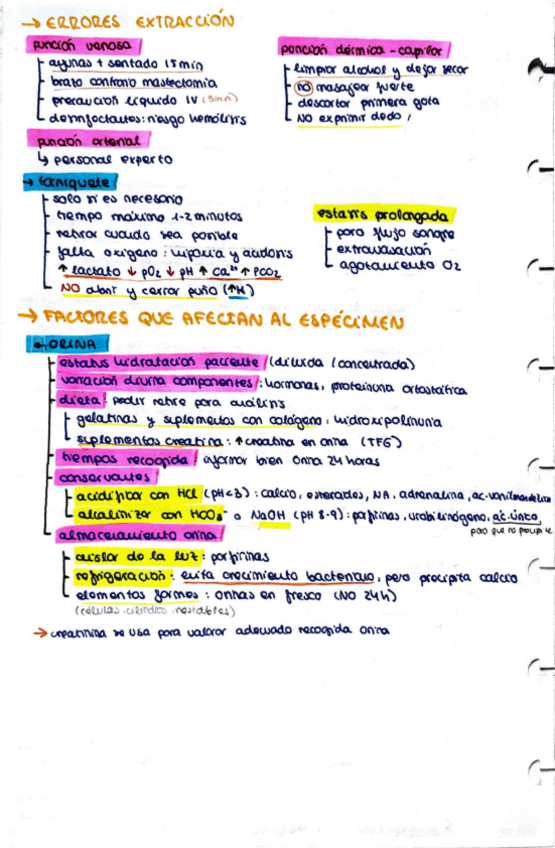 → ERRORES EXTRACCIÓN
punción venosa
ayunas + sentado 15 min
brazo contrario mastectomía
precaución líquido IV (5min)
desinfectantes: riesgo hemólisis
punción dérmica - capilar
limpiar alcohol y dejar secar
no masajear fuerte
descartar primera gota
NO exprimir dedo
punción arterial
↳ personal experto
→ torniquete
solo si es necesario
tiempo máximo 1-2 minutos
retirar cuando sea posible
falta oxígeno: hipoxia y acidosis
↑ lactato ↓ pO2 ↓ pH ↑ Ca²⁺ ↑ pCO2
NO abrir y cerrar puño (↑K)
estasis prolongada
para flujo sangre
extravasación
agotamiento O2
→ FACTORES QUE AFECTAN AL ESPÉCIMEN
ORINA
estatus hidratación paciente (diluida / concentrada)
variación diurna componentes: hormonas, proteinuria ortostática
dieta: pedir retire para análisis
gelatinas y suplementos con colágeno: hidroxiprolinuria
suplementos creatina: ↑ creatina en orina (TFG)
tiempos recogida: informar bien orina 24 horas
conservantes
acidificar con HCl (pH<3): calcio, esteroides, NA, adrenalina, ac. vanilmandélico
alcalinizar con HCO3⁻ o NaOH (pH 8-9): porfirinas, urobilinógeno, ác. úrico,
para que no precipite
almacenamiento orina
aislar de la luz: porfirinas
refrigeración: evita crecimiento bacteriano, pero precipita calcio
elementos formes: orinas en fresco (NO 24h)
(células, cilindros inestables)
→ creatinina se usa para valorar adecuado recogida orina